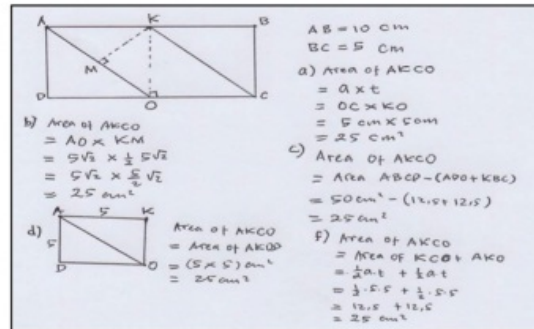 A K B
M
D O C
AB = 10 cm
BC = 5 cm
a) Area of AKCO
= a x t
= OC x KO
= 5 cm x 5 cm
= 25 cm²
b) Area of AKCO
= AO x KM
= 5√2 x ½ 5√2
= 5√2 x 5/2 √2
= 25 cm²
c) Area of AKCO
= Area ABCD - (ADO + KBC)
= 50 cm² - (12,5 + 12,5)
= 25 cm²
d) A 5 K
5
D O
Area of AKCO
= Area of AKOD
= (5 x 5) cm²
= 25 cm²
f) Area of AKCO
= Area of KCO + AKO
= ½ a.t + ½ a.t
= ½ . 5.5 + ½ . 5.5
= 12,5 + 12,5
= 25 cm²